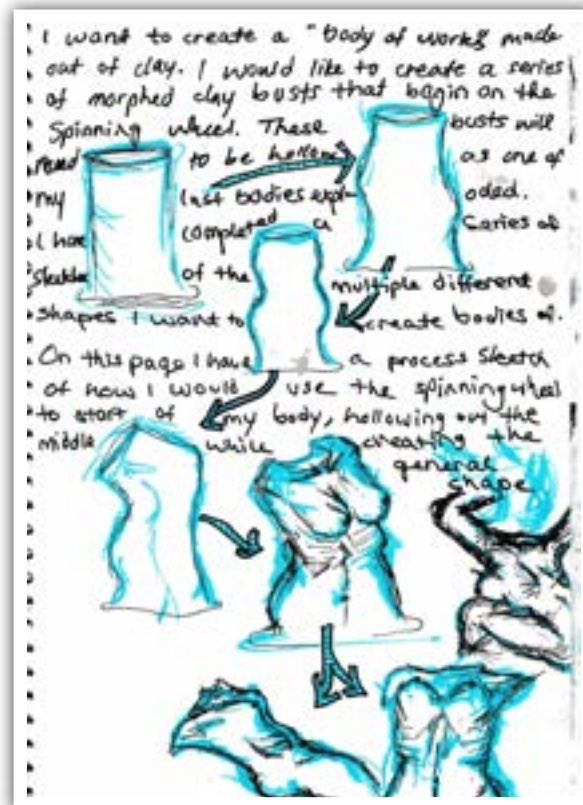 I want to create a "body of work" made
out of clay. I would like to create a series
of morphed clay busts that begin on the
Spinning wheel. These busts will
need to be hollow as one of
my last bodies expl- oded.
I have completed a Saries of
Sketches of the multiple different
shapes I want to create bodies of.
On this page I have a process sketch
of how I would use the spinning wheel
to start of my body, hollowing out the
middle while creating the
general
shape